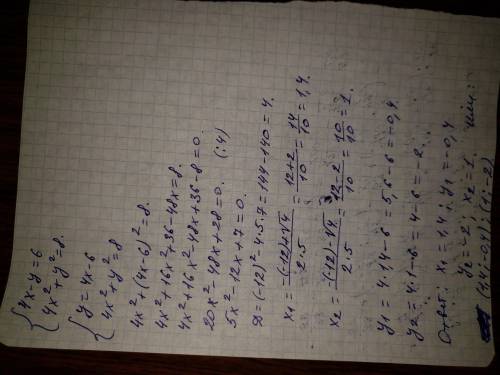 { 4x-y=6
4x²+y²=8.
{ y=4x-6
4x²+y²=8
4x²+(4x-6)²=8.
4x²+16x²+36-48x=8.
4x²+16x²-48x+36-8=0.
20x²-48x+28=0. (:4)
5x²-12x+7=0.
D=(-12)² 4·5·7=144-140=4.
x₁=-(-12)+√4/2·5=12+2/10=14/10=1,4.
x₂=-(-12)-√4/2·5=12-2/10=10/10=1.
y₁=4·1,4-6=5,6-6=-0,4.
y₂=4·1-6=4-6=-2.
Ответ: x₁=1,4; y₁=-0,4
y₂=-2; x₂=1. или:
(1,4;-0,4); (1;-2)